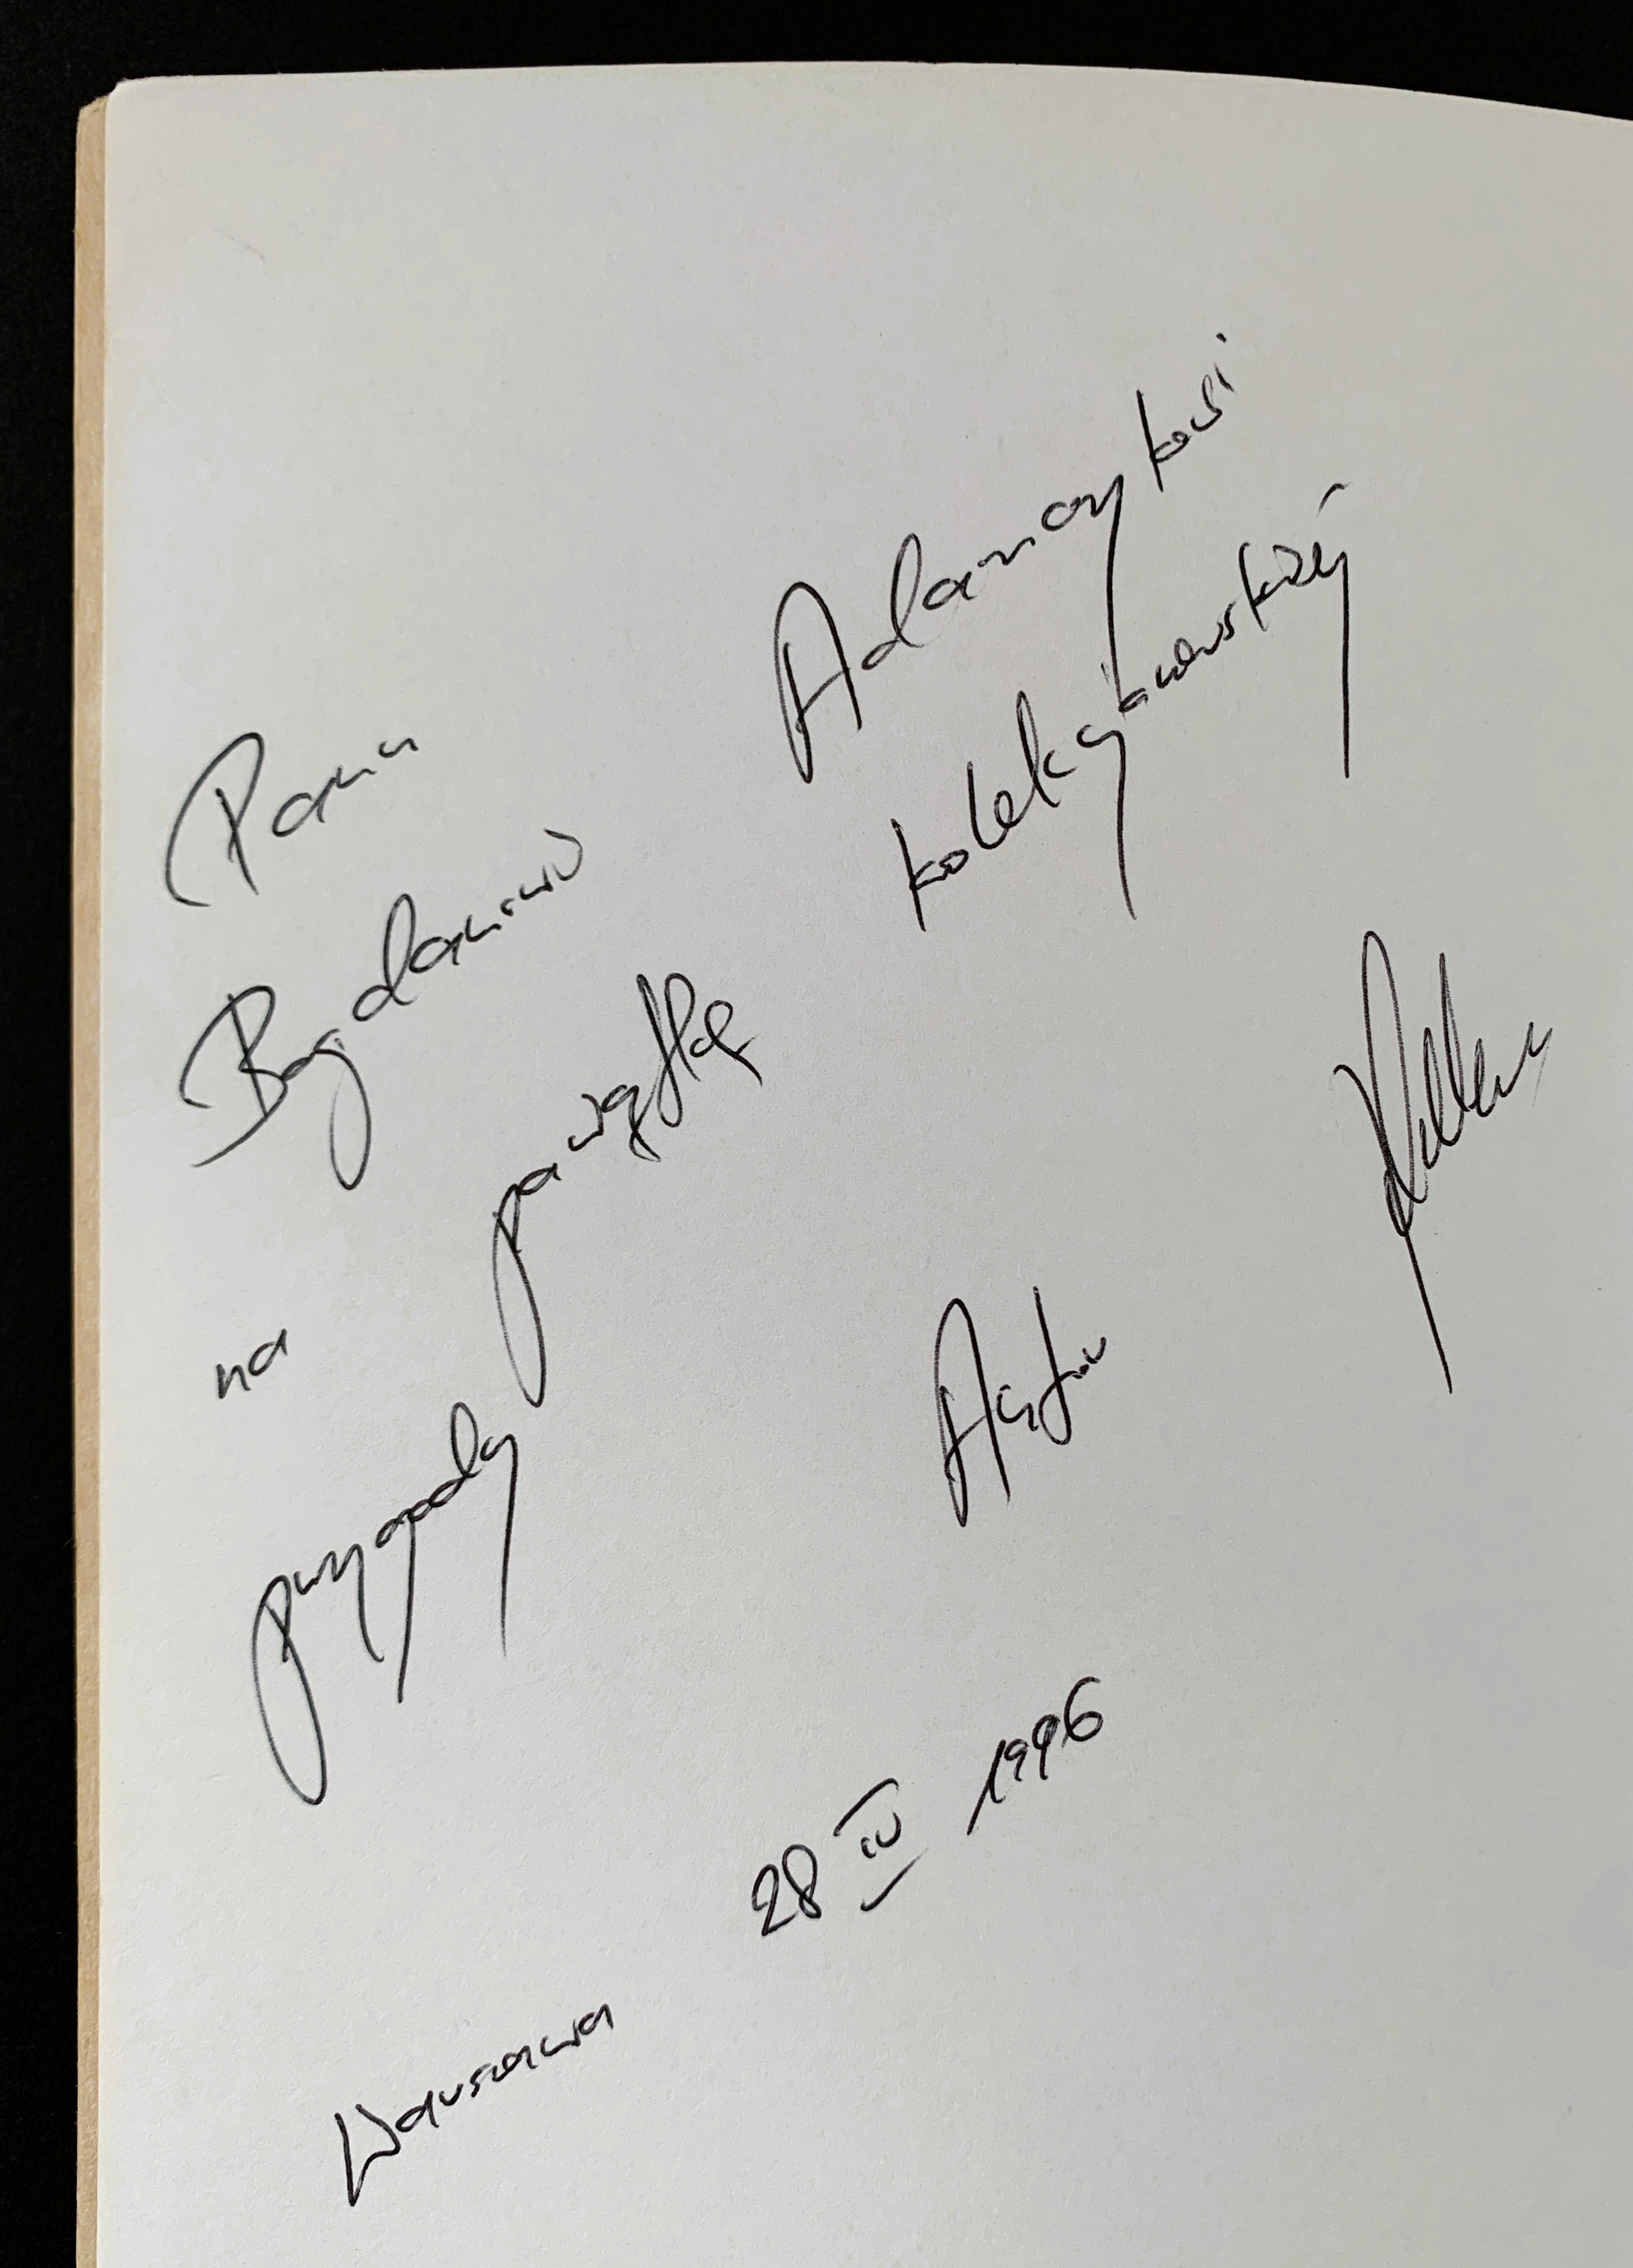 Panu
Bogdanowi Adamczykowi
na pamiątkę kolekcjonerskiej
przygody
Autor
Warszawa 28 IV 1996